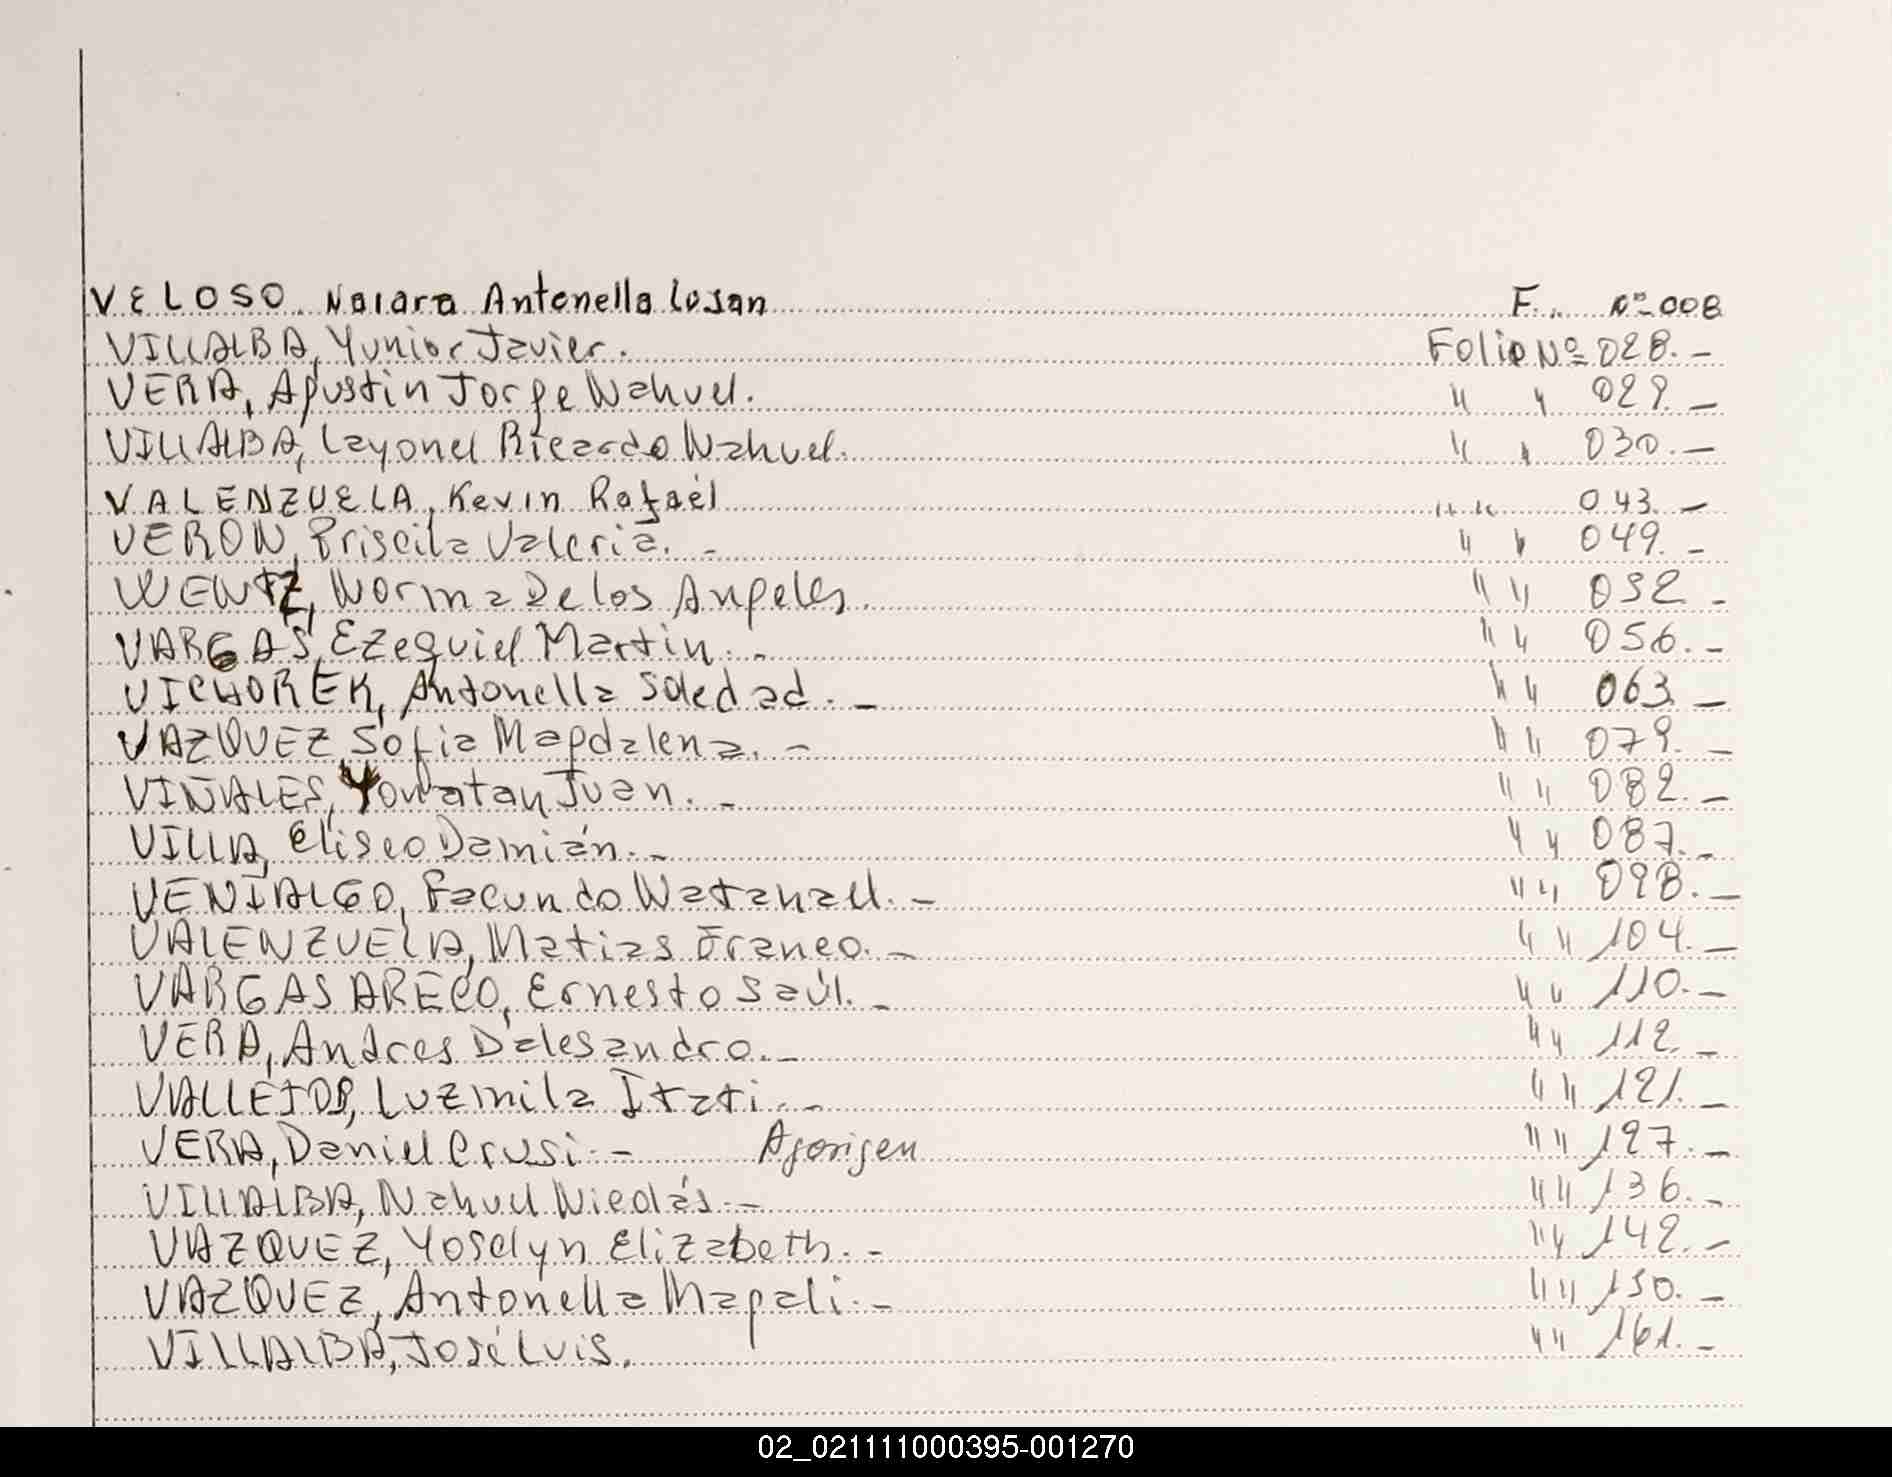 VELOSO. Naiara Antonella Losan F. „ Nº 008
VILLALBA, Yunior Javier. Folio Nº 028. —
VERA, Agustin Jorge Nahuel. " " 029. —
VILLALBA, Layonel Ricardo Nahuel. " " 030. —
VALENZUELA, Kevin Rafaél " " 043. —
VERON, Priscila Valeria. - " " 049. -
WENTZ, Norma De los Angeles. " " 052 -
VARGAS, Ezequiel Martin. - " " 056. -
VICHOREK, Antonella Soledad. — " " 063. —
VAZQUEZ Sofia Magdalena. - " " 079. —
VIÑALES, Yonatan Juan. - " " 082. —
VILLA, Eliseo Damián. - " " 087. -
VENIALGO, Facundo Natanael. — " " 098. —
VALENZUELA, Matias Franco. — " " 104. —
VARGAS ARECO, Ernesto Saúl. - " " 110. —
VERA, Andres Dalesandro. - " " 112. -
VALLEJOS, Luzmila Itati. - " " 121. —
VERA, Daniel Crusi. - " " 127. —
VILLALBA, Nahuel Nicolás. — " " 136. -
VAZQUEZ, Yoselyn Elizabeth. - " " 142. -
VAZQUEZ, Antonella Magali. - " " 150. -
VILLALBA, José Luis. " " 161. -
02_021111000395-001270